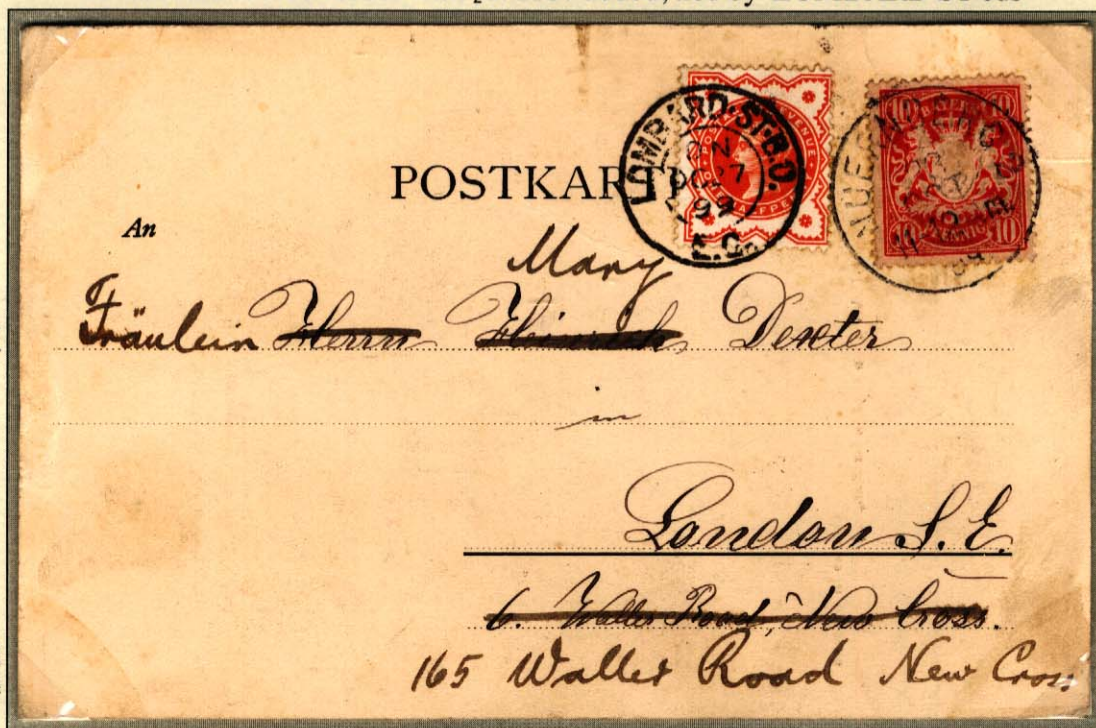 POSTKARTE
LOMBARD·ST·B.O.
E.C.
10 10
10
An
Mary
Fräulein Herrn Heinrich Dexter
in
London S.E.
6. Waller Road, New Cross.
165 Waller Road New Cross